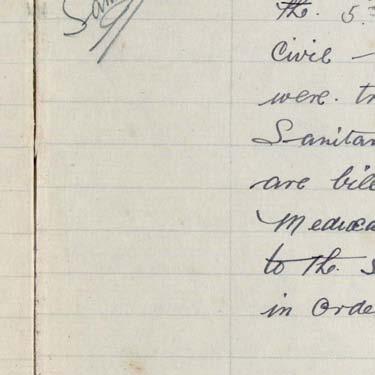 San
the. 5.
Civil -
were. tr
Sanitar
are bile
Medica
to the. S
in Orde